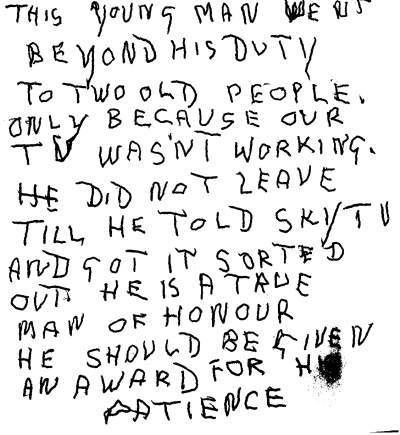 THIS YOUNG MAN WENT
BEYOND HIS DUTY
TO TWO OLD PEOPLE.
ONLY BECAUSE OUR
TV WASN'T WORKING.
HE DID NOT LEAVE
TILL HE TOLD SKY TV
AND GOT IT SORTED
OUT. HE IS A TRUE
MAN OF HONOUR
HE SHOULD BE GIVEN
AN AWARD FOR HIS
PATIENCE